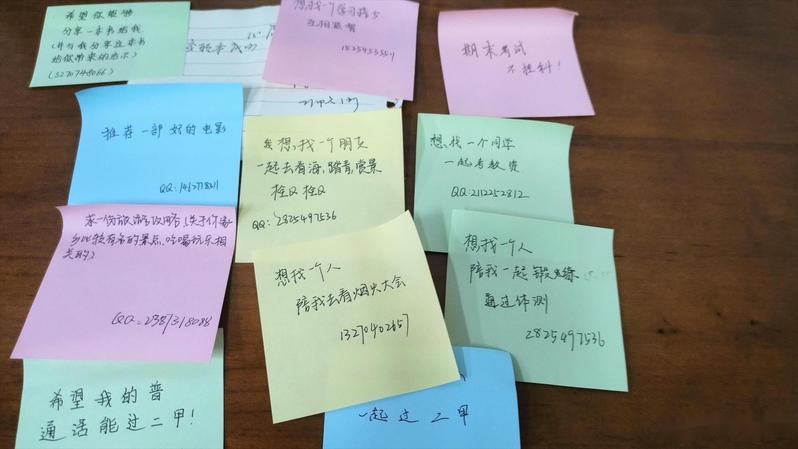 希望你能够
分享一本书给我
(并与我分享这本书
给你带来的启示)
(3270748066)
想找一个学习搭子
互相监督
1525453355
期末考试
不挂科！
推荐一部 好的电影
我想找一个朋友
一起去看海,踏青,赏景
栓Q 栓Q
QQ:2825497536
想找一个同学
一起考教资
QQ:2112252812
求一份旅游攻略(关于你家
乡比较有名的景点、吃喝玩乐相
关的)
QQ:2387318088
想找一个人
陪我去看烟火大会
13270402657
想找一个人
陪我一起锻炼
通过体测
2825497536
希望我的普
通话能过二甲!
一起过二甲